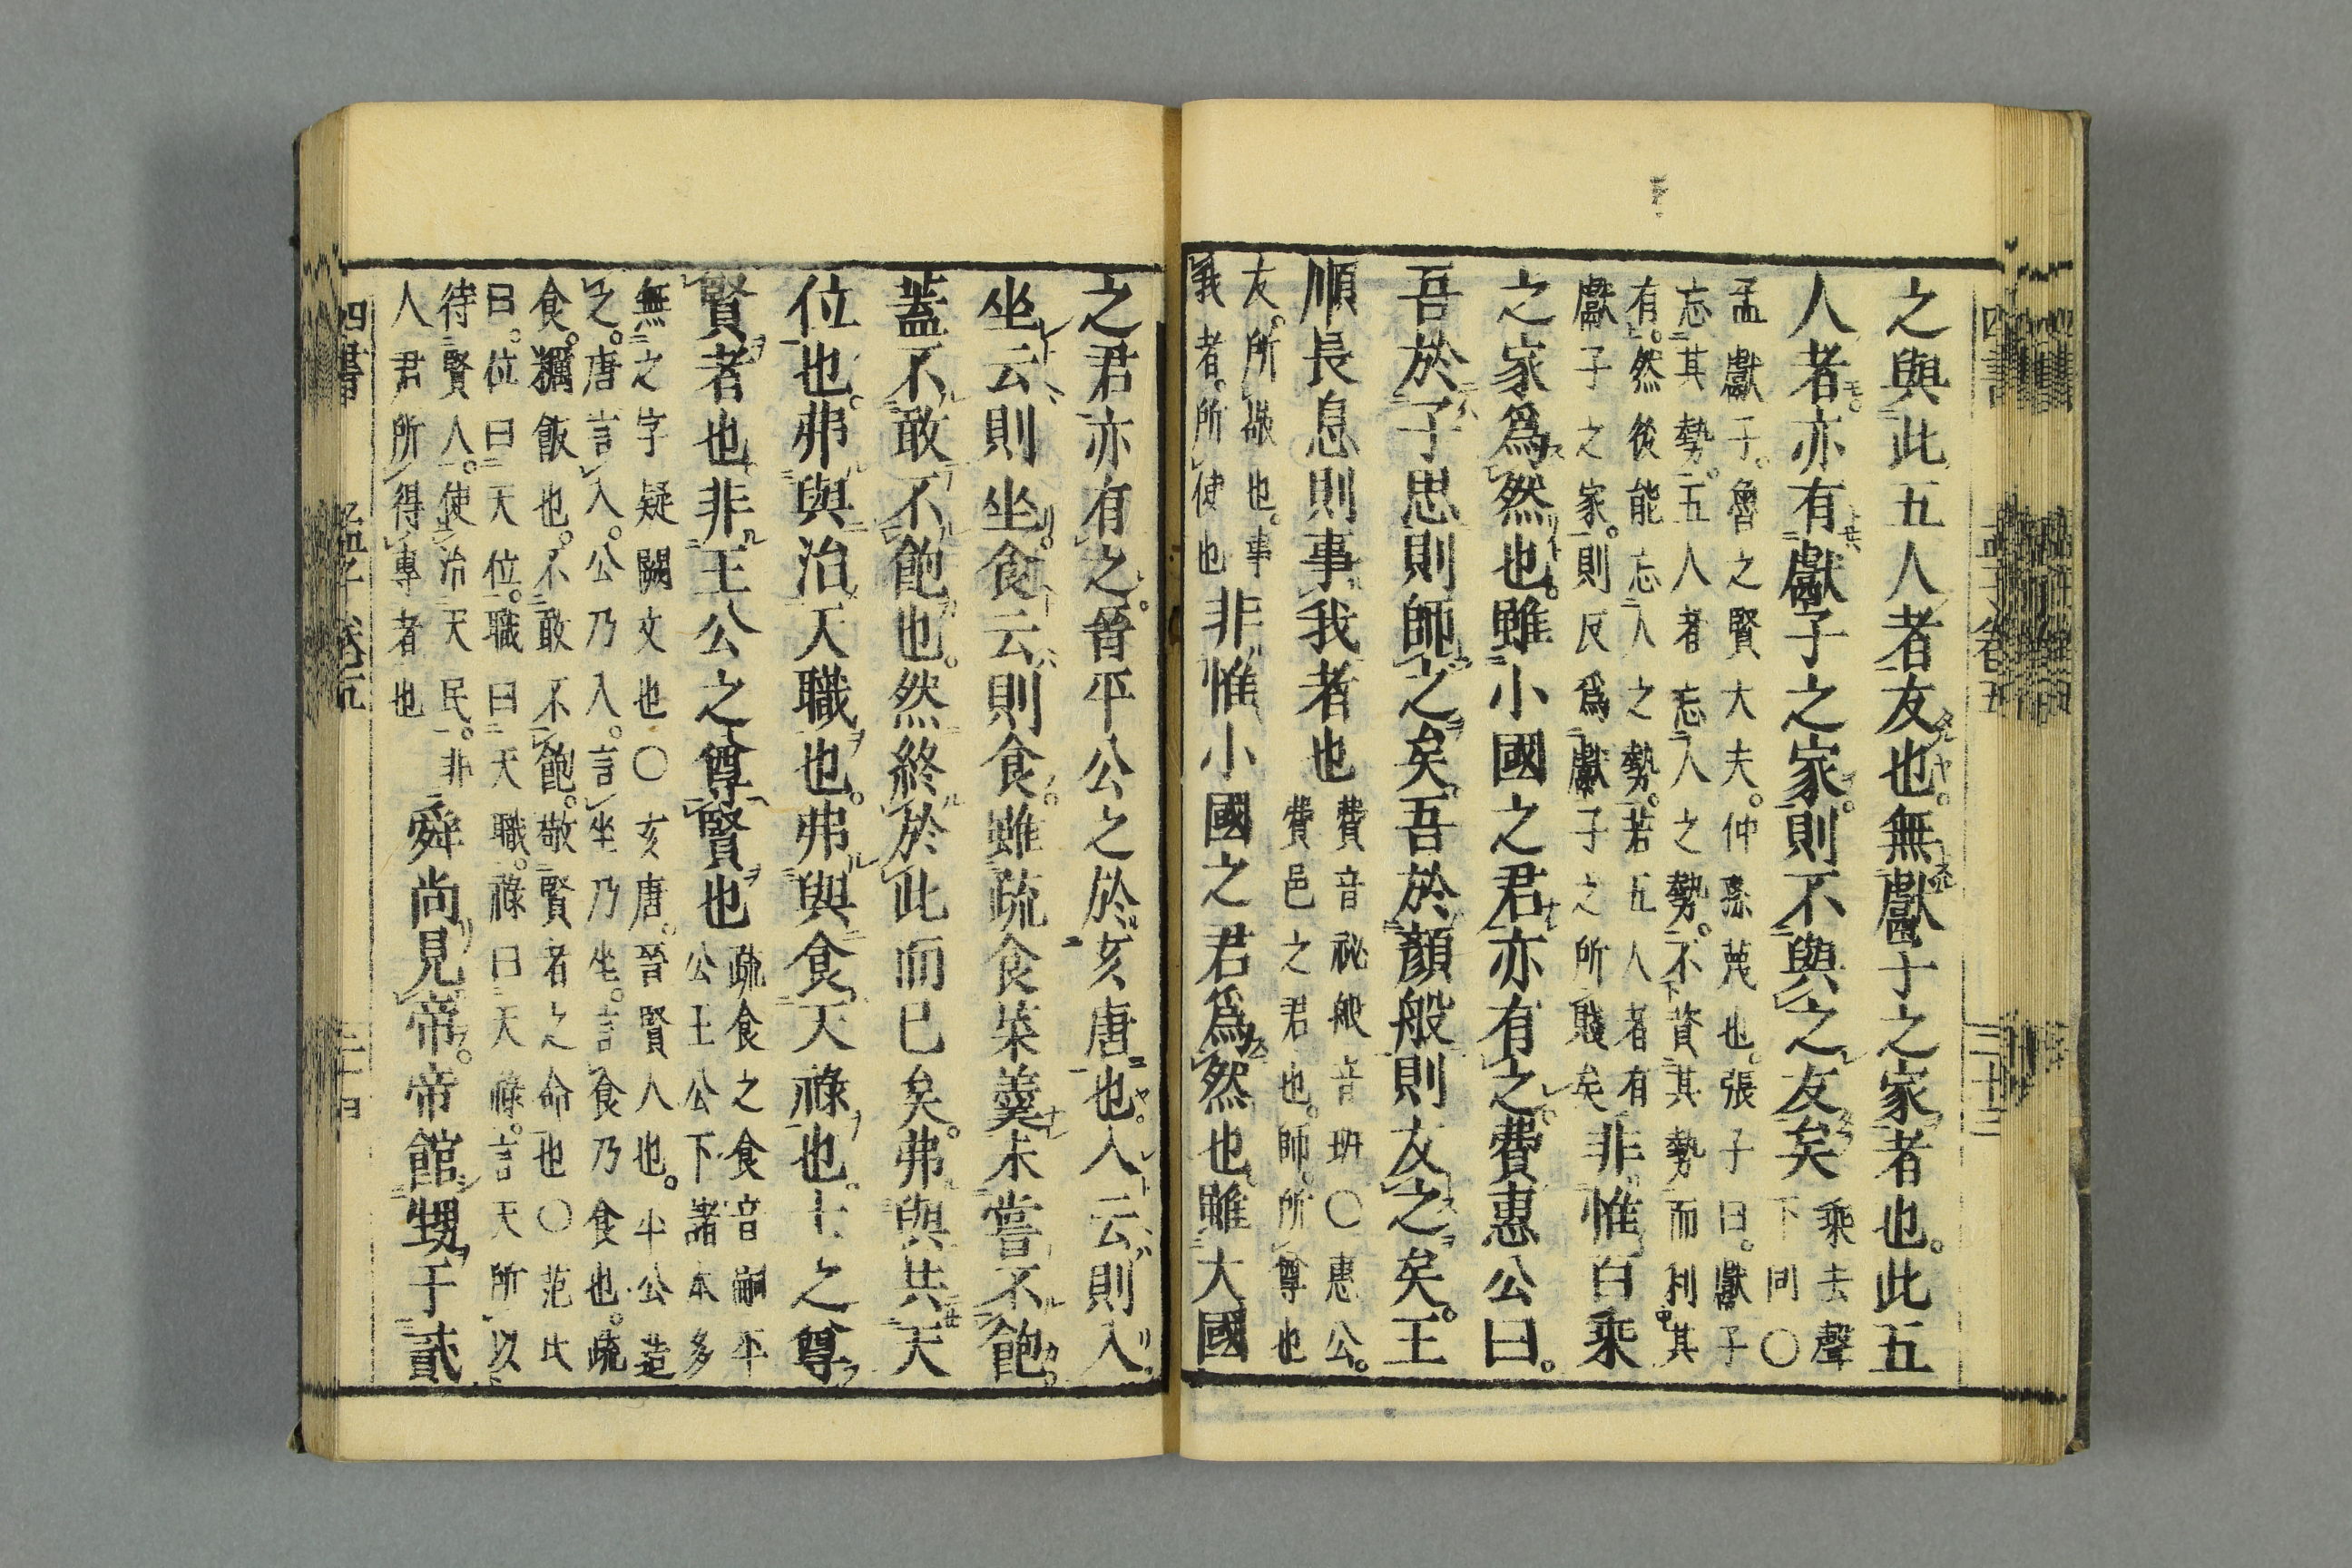 之與此五人者友也。無獻子之家者也。此五
人者。亦有獻子之家。則不與之友矣
乘去聲
下同○
孟獻子。魯之賢大夫。仲孫蔑也。張子曰。獻子
忘其勢。五人者忘人之勢。不資其勢而利其
有。然後能忘人之勢。若五人者有
獻子之家。則反爲獻子之所賤矣
非惟百乘
之家爲然也。雖小國之君亦有之。費惠公曰。
吾於子思則師之矣。吾於顔般則友之矣。王
順長息則事我者也
費音祕般音班○惠公。
費邑之君也。師。所尊也
友。所敬也。事
我者。所使也
非惟小國之君爲然也。雖大國
四書 孟子卷五 三十三
之君亦有之。晉平公之於亥唐也。入云則入。
坐云則坐。食云則食。雖疏食菜羹未嘗不飽。
蓋不敢不飽也。然終於此而已矣。弗與共天
位也。弗與治天職也。弗與食天祿也。士之尊
賢者也。非王公之尊賢也
疏食之食音嗣平
公王公下諸本多
無之字疑闕文也○亥唐。晉賢人也。平公造
之。唐言入。公乃入。言坐乃坐。言食乃食也。疏
食。糲飯也。不敢不飽。敬賢者之命也○范氏
曰。位曰天位。職曰天職。祿曰天祿。言天所以
待賢人。使治天民。非
人君所得專者也
舜尚見帝。帝館甥于貳
四書 孟子卷五 三十四